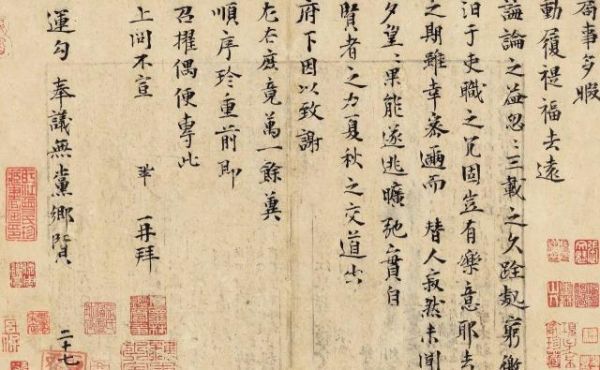 局事多暇
動履禔福去遠
誨論之益忽〻三載之久跧處窮徼
汨于吏職之冗固豈有樂意耶去
之期雖幸密邇而替人寂然未聞
夕望〻果能遂逃曠弛實自
賢者之力夏秋之交道出
府下因以致謝
左右庶竟萬一餘冀
順序珍重前即
召擢偶便專此
上問不宣 鞏 再拜
運勾奉議無黨鄉賢 二十七